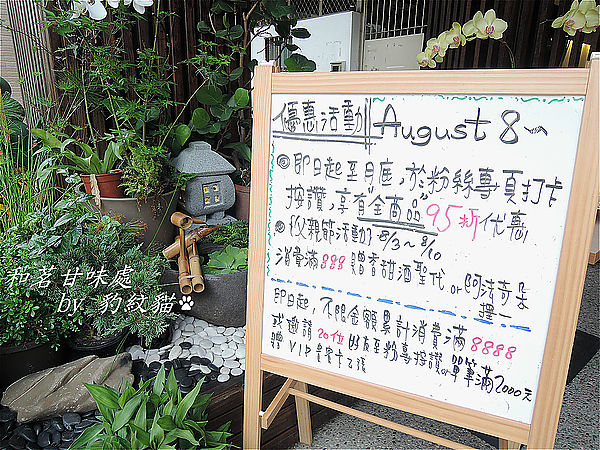 優惠活動 August 8
即日起至月底,於粉絲專頁打卡
按讚,享有"全商品"95折優惠
父親節活動 8/3~8/10
消費滿888贈香甜酒聖代 or 阿法奇朵
擇一
即日起,不限金額累計消費滿8888
或邀請20位好友至粉專按讚 or 單筆滿2000元
贈VIP貴賓卡乙張
和茗甘味處
by 豹紋貓